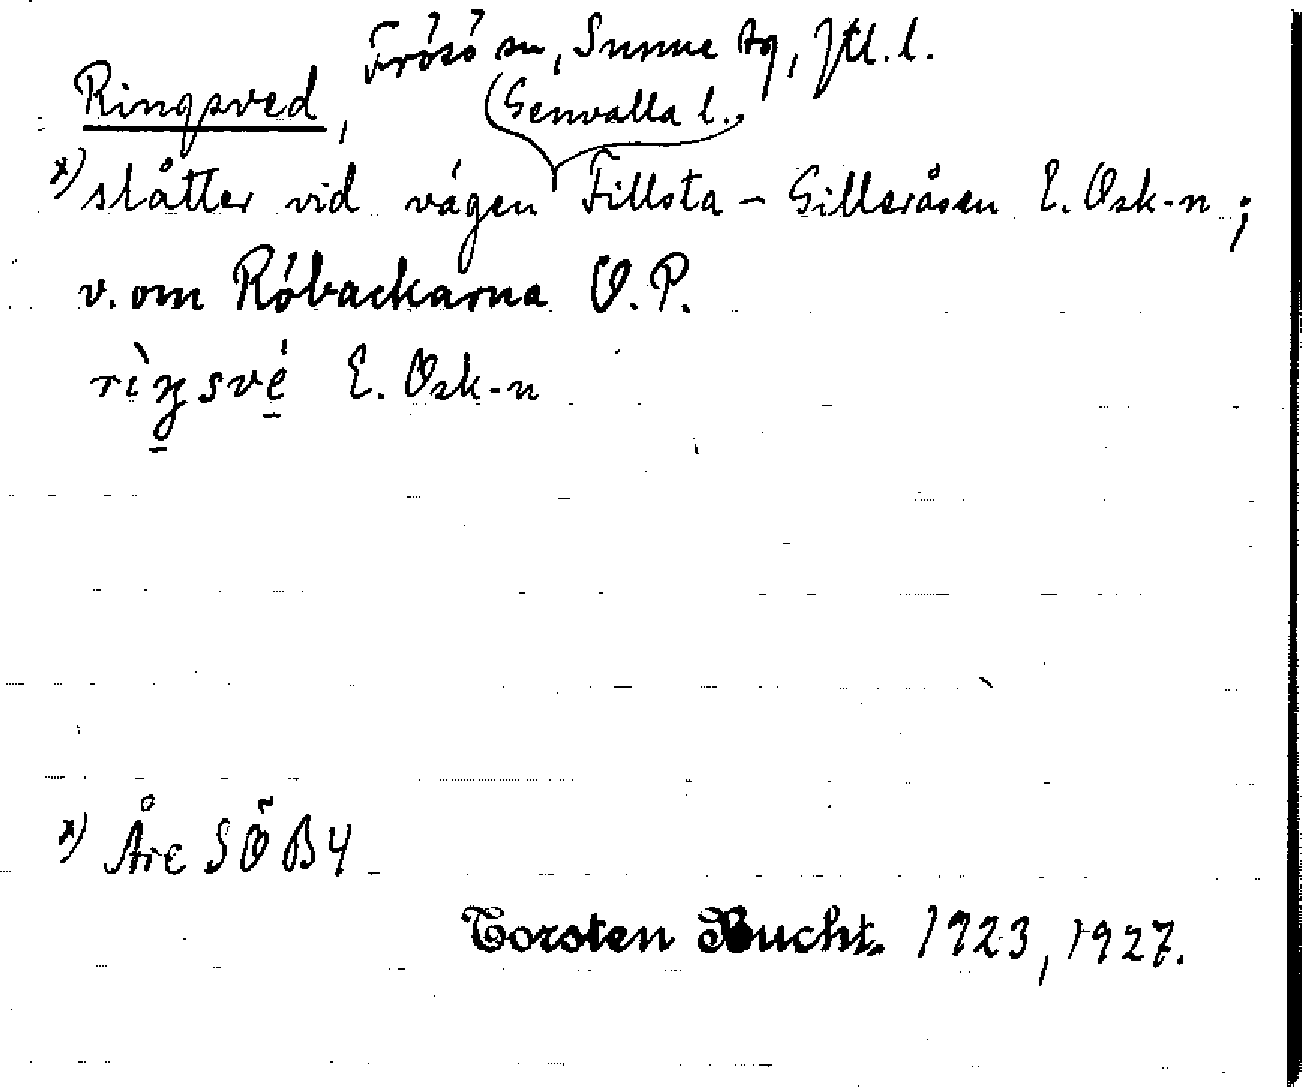 Frösö sn, Sunne tg, Jtl. l.
Ringsved,
(Genvalla l.)
x) slåtter vid vägen Fillsta - Gilleråsen E. Osk-n;
v. om Röbackarna O.P.
rìŋsvé E. Osk-n
x) Åre SÖ B4
Torsten Bucht. 1923, 1927.